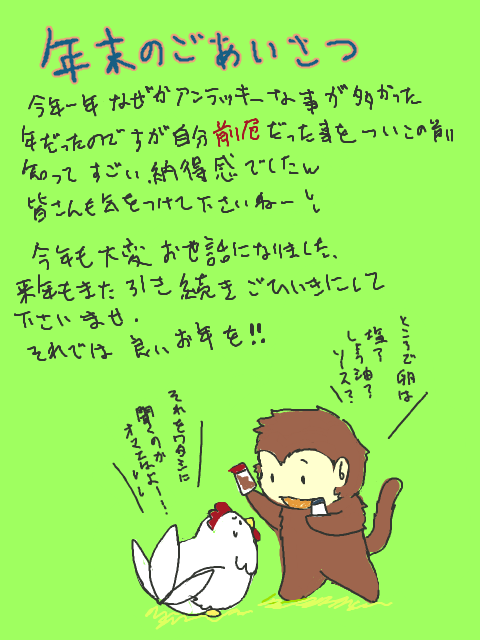 年末のごあいさつ
今年一年なぜかアンラッキーな事が多かった
年だったのですが自分前厄だった事をついこの前
知ってすごい納得感でしたw
皆さんも気をつけて下さいねーし
今年も大変お世話になりました、
来年もまた引き続きごひいきにして
下さいませ.
それでは良いお年を!!
ところで卵は
塩？
しょう油？
ソース？
それをワタシに
聞くのか
オマエはよー!!